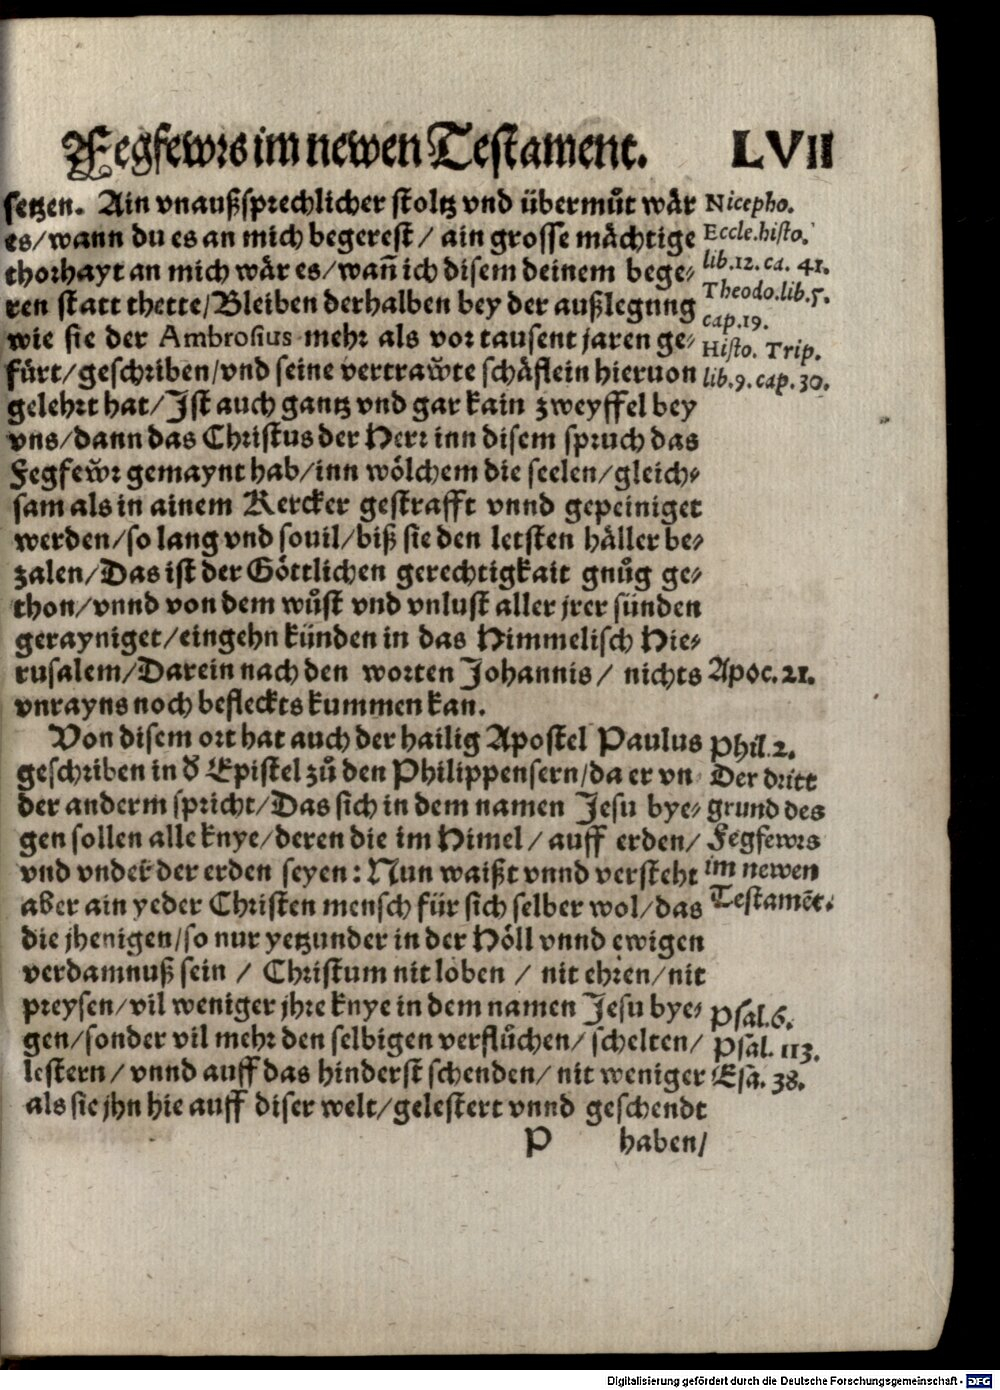 Fegfewrs im newen Testament. LVII
setzen. Ain vnaußsprechlicher stoltz vnd übermůt wär
es/wann du es an mich begerest/ ain grosse mächtige
thorhayt an mich wär es/wañ ich disem deinem bege⸗
ren statt thette/Bleiben derhalben bey der außlegung
wie sie der Ambrosius mehr als vor tausent jaren ge⸗
fürt/geschriben/vnd seine vertraw̌te schäflein hieruon
gelehrt hat/Ist auch gantz vnd gar kain zweyffel bey
vns/dann das Christus der Herr inn disem spruch das
Fegfew̌r gemaynt hab/inn wölchem die seelen/gleich⸗
sam als in ainem Kercker gestrafft vnnd gepeiniget
werden/so lang vnd souil/biß sie den letsten häller be⸗
zalen/Das ist der Göttlichen gerechtigkait gnůg ge⸗
thon/vnnd von dem wůst vnd vnlust aller jrer sünden
gerayniget/eingehn künden in das Himmelisch Hie⸗
rusalem/Darein nach den worten Johannis/ nichts
vnrayns noch befleckts kummen kan.
Von disem ort hat auch der hailig Apostel Paulus
geschriben in d̕ Epistel zů den Philippensern/da er vn
der anderm spricht/Das sich in dem namen Jesu bye⸗
gen sollen alle knye/deren die im Himel/ auff erden/
vnd vnder der erden seyen: Nun waißt vnnd versteht
aber ain yeder Christen mensch für sich selber wol/das
die jhenigen/so nur yetzunder in der Höll vnnd ewigen
verdamnuß sein / Christum nit loben / nit ehren/nit
preysen/vil weniger jhre knye in dem namen Jesu bye⸗
gen/sonder vil mehr den selbigen verflůchen/ schelten/
lestern/ vnnd auff das hinderst schenden/ nit weniger
als sie jhn hie auff diser welt/gelestert vnnd geschendt
P haben/
Nicepho.
Eccle.histo.
lib.12. ca. 41.
Theodo.lib.5.
cap.19.
Histo. Trip.
lib.9. cap. 30.
Apoc. 21.
Phil. 2.
Der dritt
grund des
Fegfewrs
im newen
Testamēt.
Psal.6.
Psal. 113.
Esa. 38.
Digitalisierung gefördert durch die Deutsche Forschungsgemeinschaft - DFG